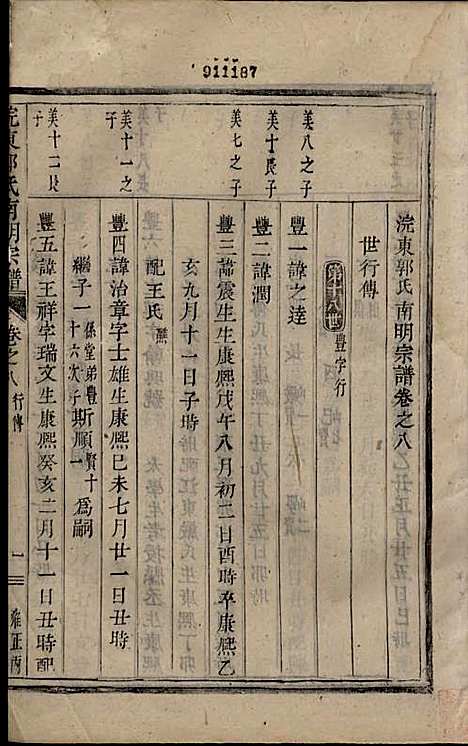 911187
浣東郭氏南明宗譜卷之八
世行傳
第十八世 豐字行
美八之子
豐一諱之達
美十長子
豐二諱潤
美七之子
豐三諱震生生康熙戊午八月初二日酉時卒康熙乙
亥九月十一日子時
配王氏
美十一之子
豐四諱治章字士雄生康熙己未七月廿一日丑時
繼子一係堂弟豐賢十六次子斯順十為嗣
美十二長子
豐五諱王祥字瑞文生康熙癸亥二月十一日丑時配
浣東郭氏南明宗譜
卷之八
行傳
一
雍正丙